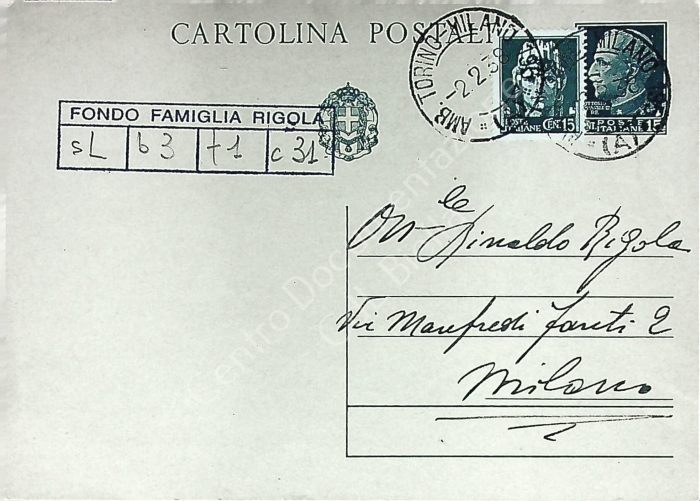 CARTOLINA POSTALE
AMB. TORINO-MILANO
-2.2.38
MILANO
(A)
POSTE ITALIANE CENT. 15
POSTE ITALIANE 15
FONDO FAMIGLIA RIGOLA
sL b3 f1 c31
On le Rinaldo Rigola
Via Manfredi Fanti 2
Milano
Centro Doc